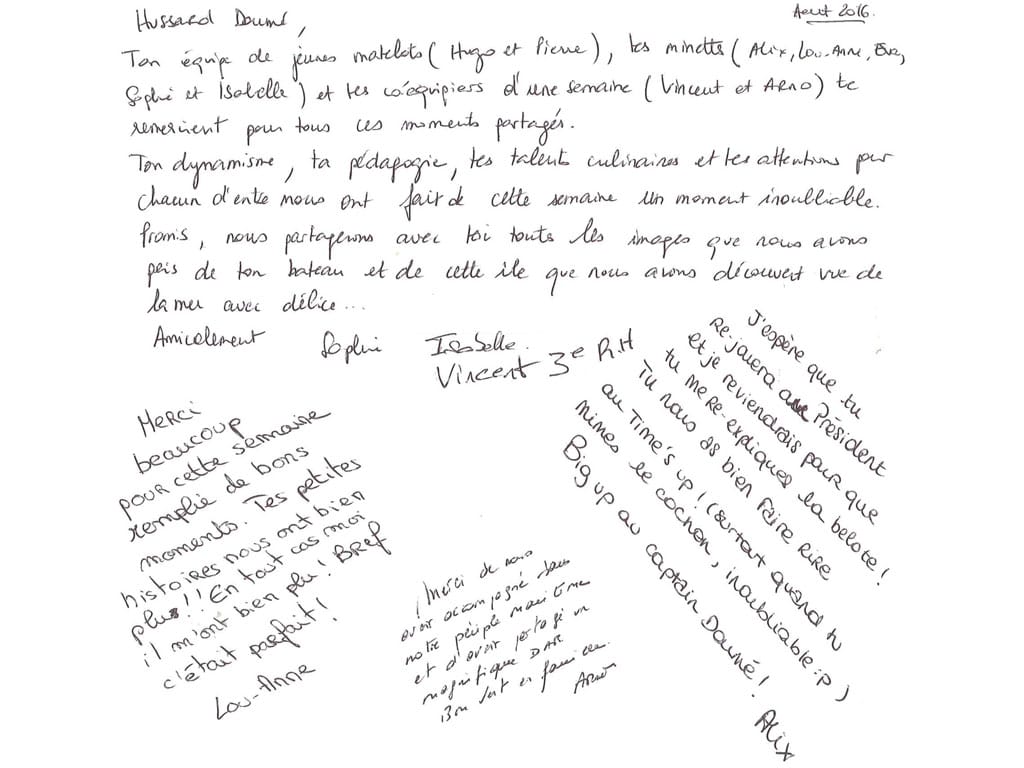 Aout 2016.
Hussard Doumé,
Ton équipe de jeunes matelots (Hugo et Pierre), tes minettes (Alix, Lou-Anne, Eva,
Sophie et Isabelle) et tes coéquipiers d'une semaine (Vincent et Arno) te
remercient pour tous ces moments partagés.
Ton dynamisme, ta pédagogie, tes talents culinaires et tes attentions pour
chacun d'entre nous ont fait de cette semaine un moment inoubliable.
Promis, nous partagerons avec toi toutes les images que nous avons
pris de ton bateau et de cette île que nous avons découvert vue de
la mer avec délice...
Amicalement
Sophie Isabelle.
Vincent 3e R.H
Merci
beaucoup
pour cette semaine
remplie de bons
moments. Tes petites
histoires nous ont bien
plus!! En tout cas moi
il m'ont bien plu! Bref
c'était parfait!
Lou-Anne
Merci de nous
avoir accompagné dans
notre périple maritime
et d'avoir partagé un
magnifique
Bon vent en famille.
Arno
J'espère que tu
Re-jouera au Président
et je reviendrais pour que
tu me re-expliques la belote!
Tu nous as bien faire rire
au Time's up! (surtout quand tu
mimes le cochon, inoubliable :p)
Big up au captain Doumé!
Alix